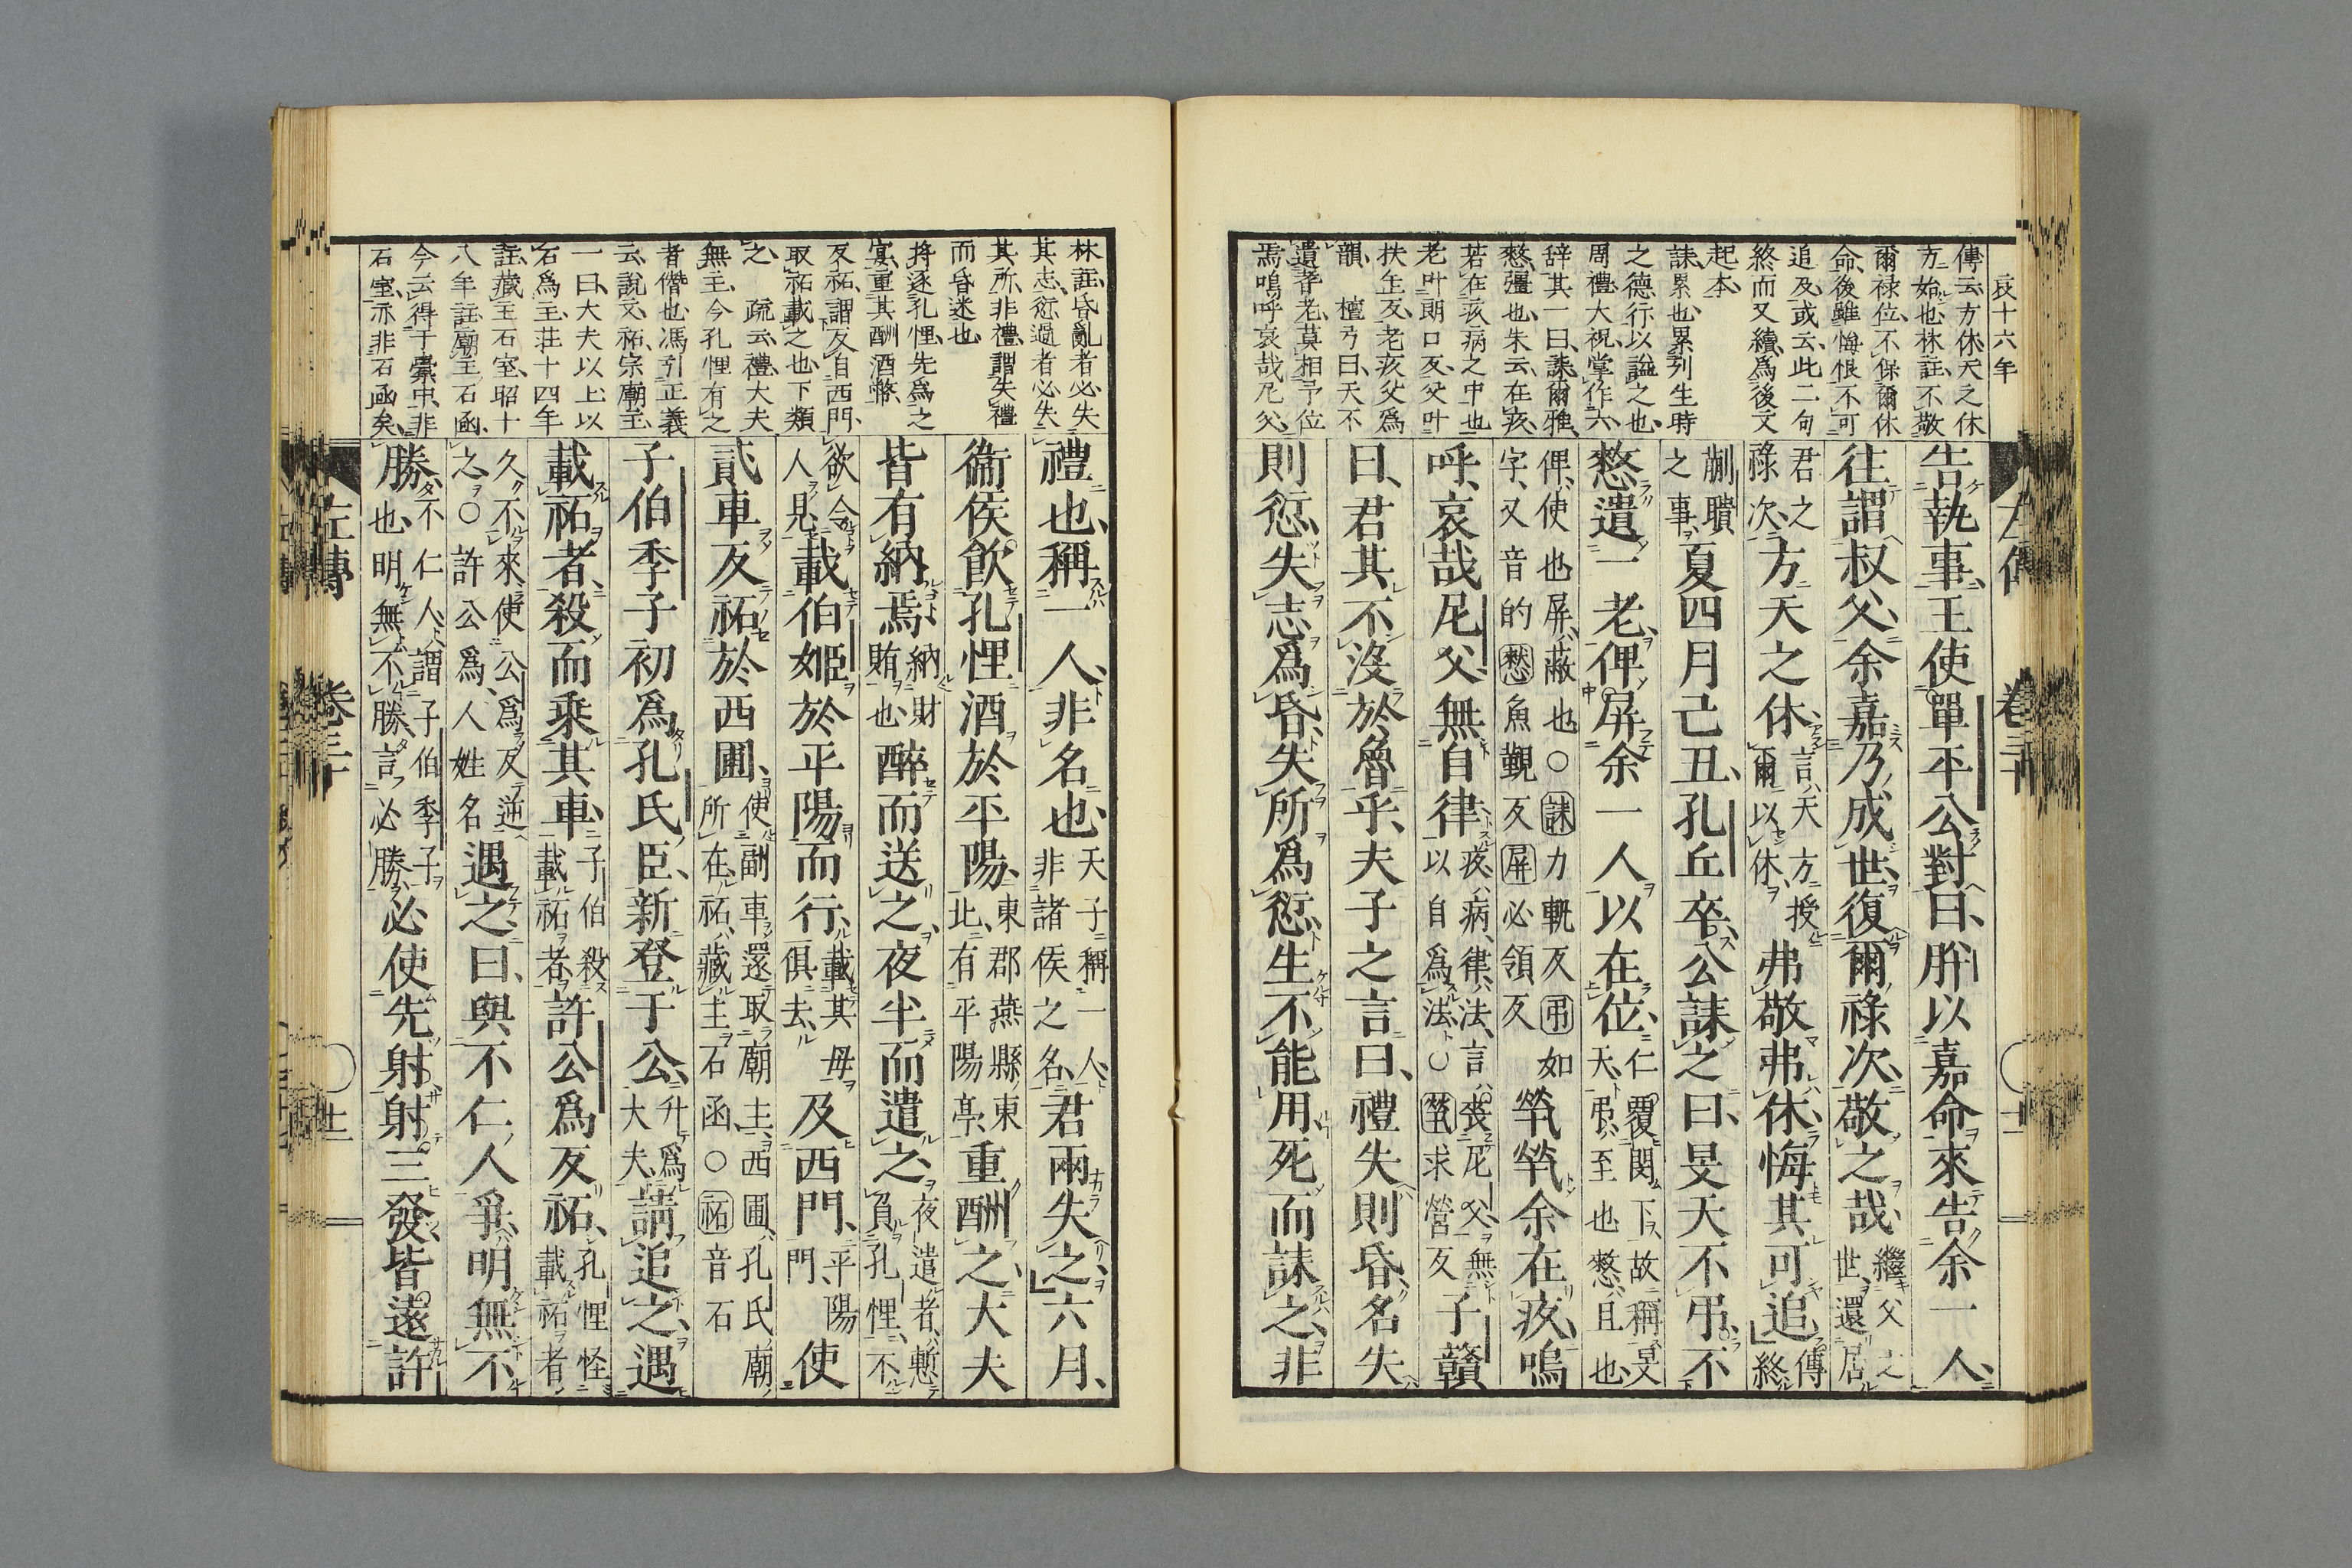 哀十六年
傳云方休天之休
方始也林註不敬
爾禄位不保爾休
命後雖悔恨不可
追及或云此二句
終而又續爲後文
起本
誄累也累列生時
之德行以謚之也
周禮大祝掌作六
辞其一曰誄爾雅
憖彊也朱云在疚
若在疚病之中也
老叶朗口反父叶
扶生反老疚父爲
韻 檀弓曰天不
遺耆老莫相予位
焉嗚呼哀哉尼父
告執事王使單平公對曰肸以嘉命來告余一人
往謂叔父余嘉乃成世復爾祿次敬之哉繼父之世還居
君之祿次方天之休言天方授爾以休弗敬弗休悔其可追傳終
蒯聵之事夏四月己丑孔丘卒公誄之曰旻天不弔不
憖遺一老俾屏余一人以在位仁覆閔下故稱旻天弔至也憖且也
俾使也屏蔽也○誄力軌反弔如字又音的憖魚覲反屏必領反煢煢余在疚嗚
呼哀哉尼父無自律疚病律法言喪尼父無以自爲法○煢求營反子贛
曰君其不沒於魯乎夫子之言曰禮失則昏名失
則愆失志爲昏失所爲愆生不能用死而誄之非
林註昏亂者必失
其志愆過者必失
其所非禮謂失禮
而昏迷也
將逐孔悝先爲之
宴重其酬酒幣
反祏謂反自西門
取祏載之也下類
之 疏云禮大夫
無主今孔悝有之
者僭也馮引正義
云說文祏宗廟主
一曰大夫以上以
石爲主莊十四年
註藏主石室昭十
八年註廟主石函
今云得于橐中非
石室亦非石函矣
禮也稱一人非名也天子稱一人非諸侯之名君兩失之六月
衞侯飮孔悝酒於平陽東郡燕縣東北有平陽亭重酬之大夫
皆有納焉納財賄也醉而送之夜半而遣之夜遣者慙負孔悝不
欲令人見載伯姬於平陽而行載其母俱去及西門平陽門使
貳車反祏於西圃使副車還取廟主西圃孔氏廟所在祏藏主石函○祏音石
子伯季子初爲孔氏臣新登于公升爲大夫請追之遇
載祏者殺而乘其車子伯殺載祏者許公爲反祏孔悝怪載祏者
久不來使公爲反逆之○許公爲人姓名遇之曰與不仁人爭明無不
勝不仁人謂子伯季子也明無不勝言必勝必使先射射三發皆遠許
左傳 卷三十 廿二